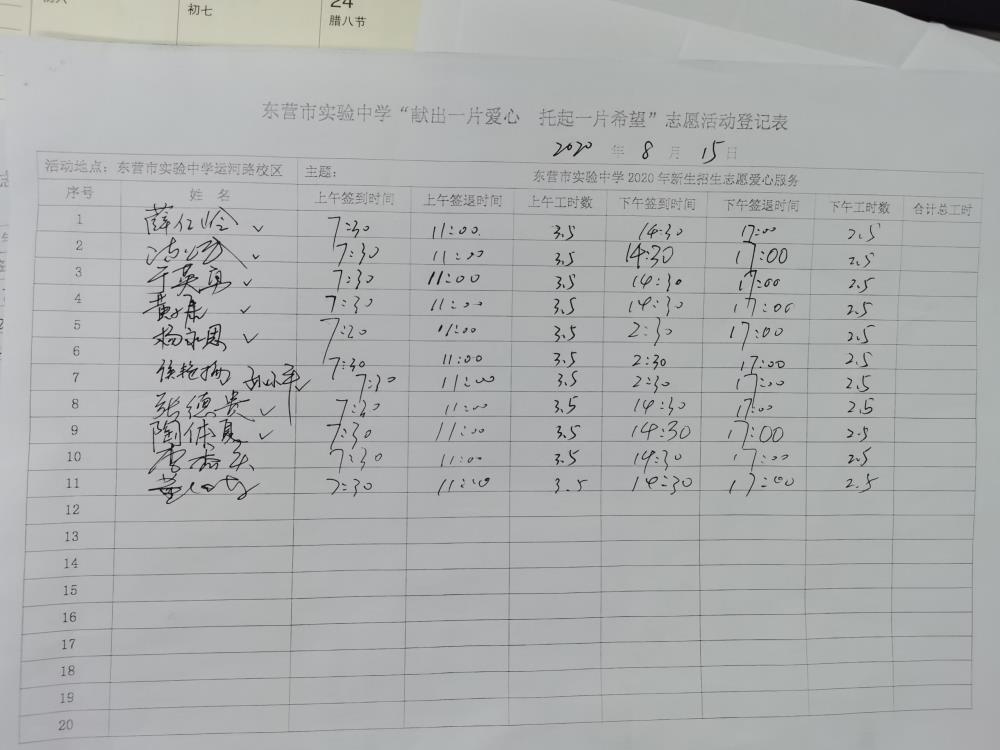 初七
24
腊八节
东营市实验中学“献出一片爱心 托起一片希望”志愿活动登记表
2020 年 8 月 15 日
活动地点：东营市实验中学运河路校区 主题： 东营市实验中学2020年新生招生志愿爱心服务
序号 姓 名 上午签到时间 上午签退时间 上午工时数 下午签到时间 下午签退时间 下午工时数 合计总工时
1 薛仁玲 7:30 11:00 3.5 14:30 17:00 2.5
2 7:30 11:00 3.5 14:30 17:00 2.5
3 于英勇 7:30 11:00 3.5 14:30 17:00 2.5
4 7:30 11:00 3.5 14:30 17:00 2.5
5 杨永恩 7:30 11:00 3.5 2:30 17:00 2.5
6 7:30 11:00 3.5 2:30 17:00 2.5
7 7:30 11:00 3.5 2:30 17:00 2.5
8 张德贵 7:30 11:00 3.5 14:30 17:00 2.5
9 7:30 11:00 3.5 14:30 17:00 2.5
10 7:30 11:00 3.5 14:30 17:00 2.5
11 7:30 11:00 3.5 14:30 17:00 2.5
12
13
14
15
16
17
18
19
20